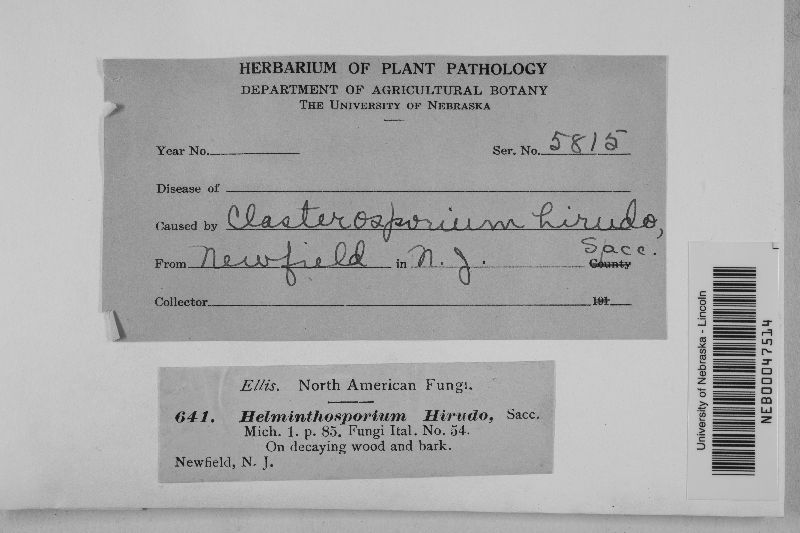 HERBARIUM OF PLANT PATHOLOGY
DEPARTMENT OF AGRICULTURAL BOTANY
THE UNIVERSITY OF NEBRASKA
Year No.
Ser. No. 5815
Disease of
Caused by Clasterosporium hirudo,
Sacc.
From Newfield in N. J. County
Collector 191
Ellis. North American Fungi.
641. Helminthosporium Hirudo, Sacc.
Mich. 1. p. 85. Fungi Ital. No. 54.
On decaying wood and bark.
Newfield, N. J.
University of Nebraska - Lincoln
NEB00047514